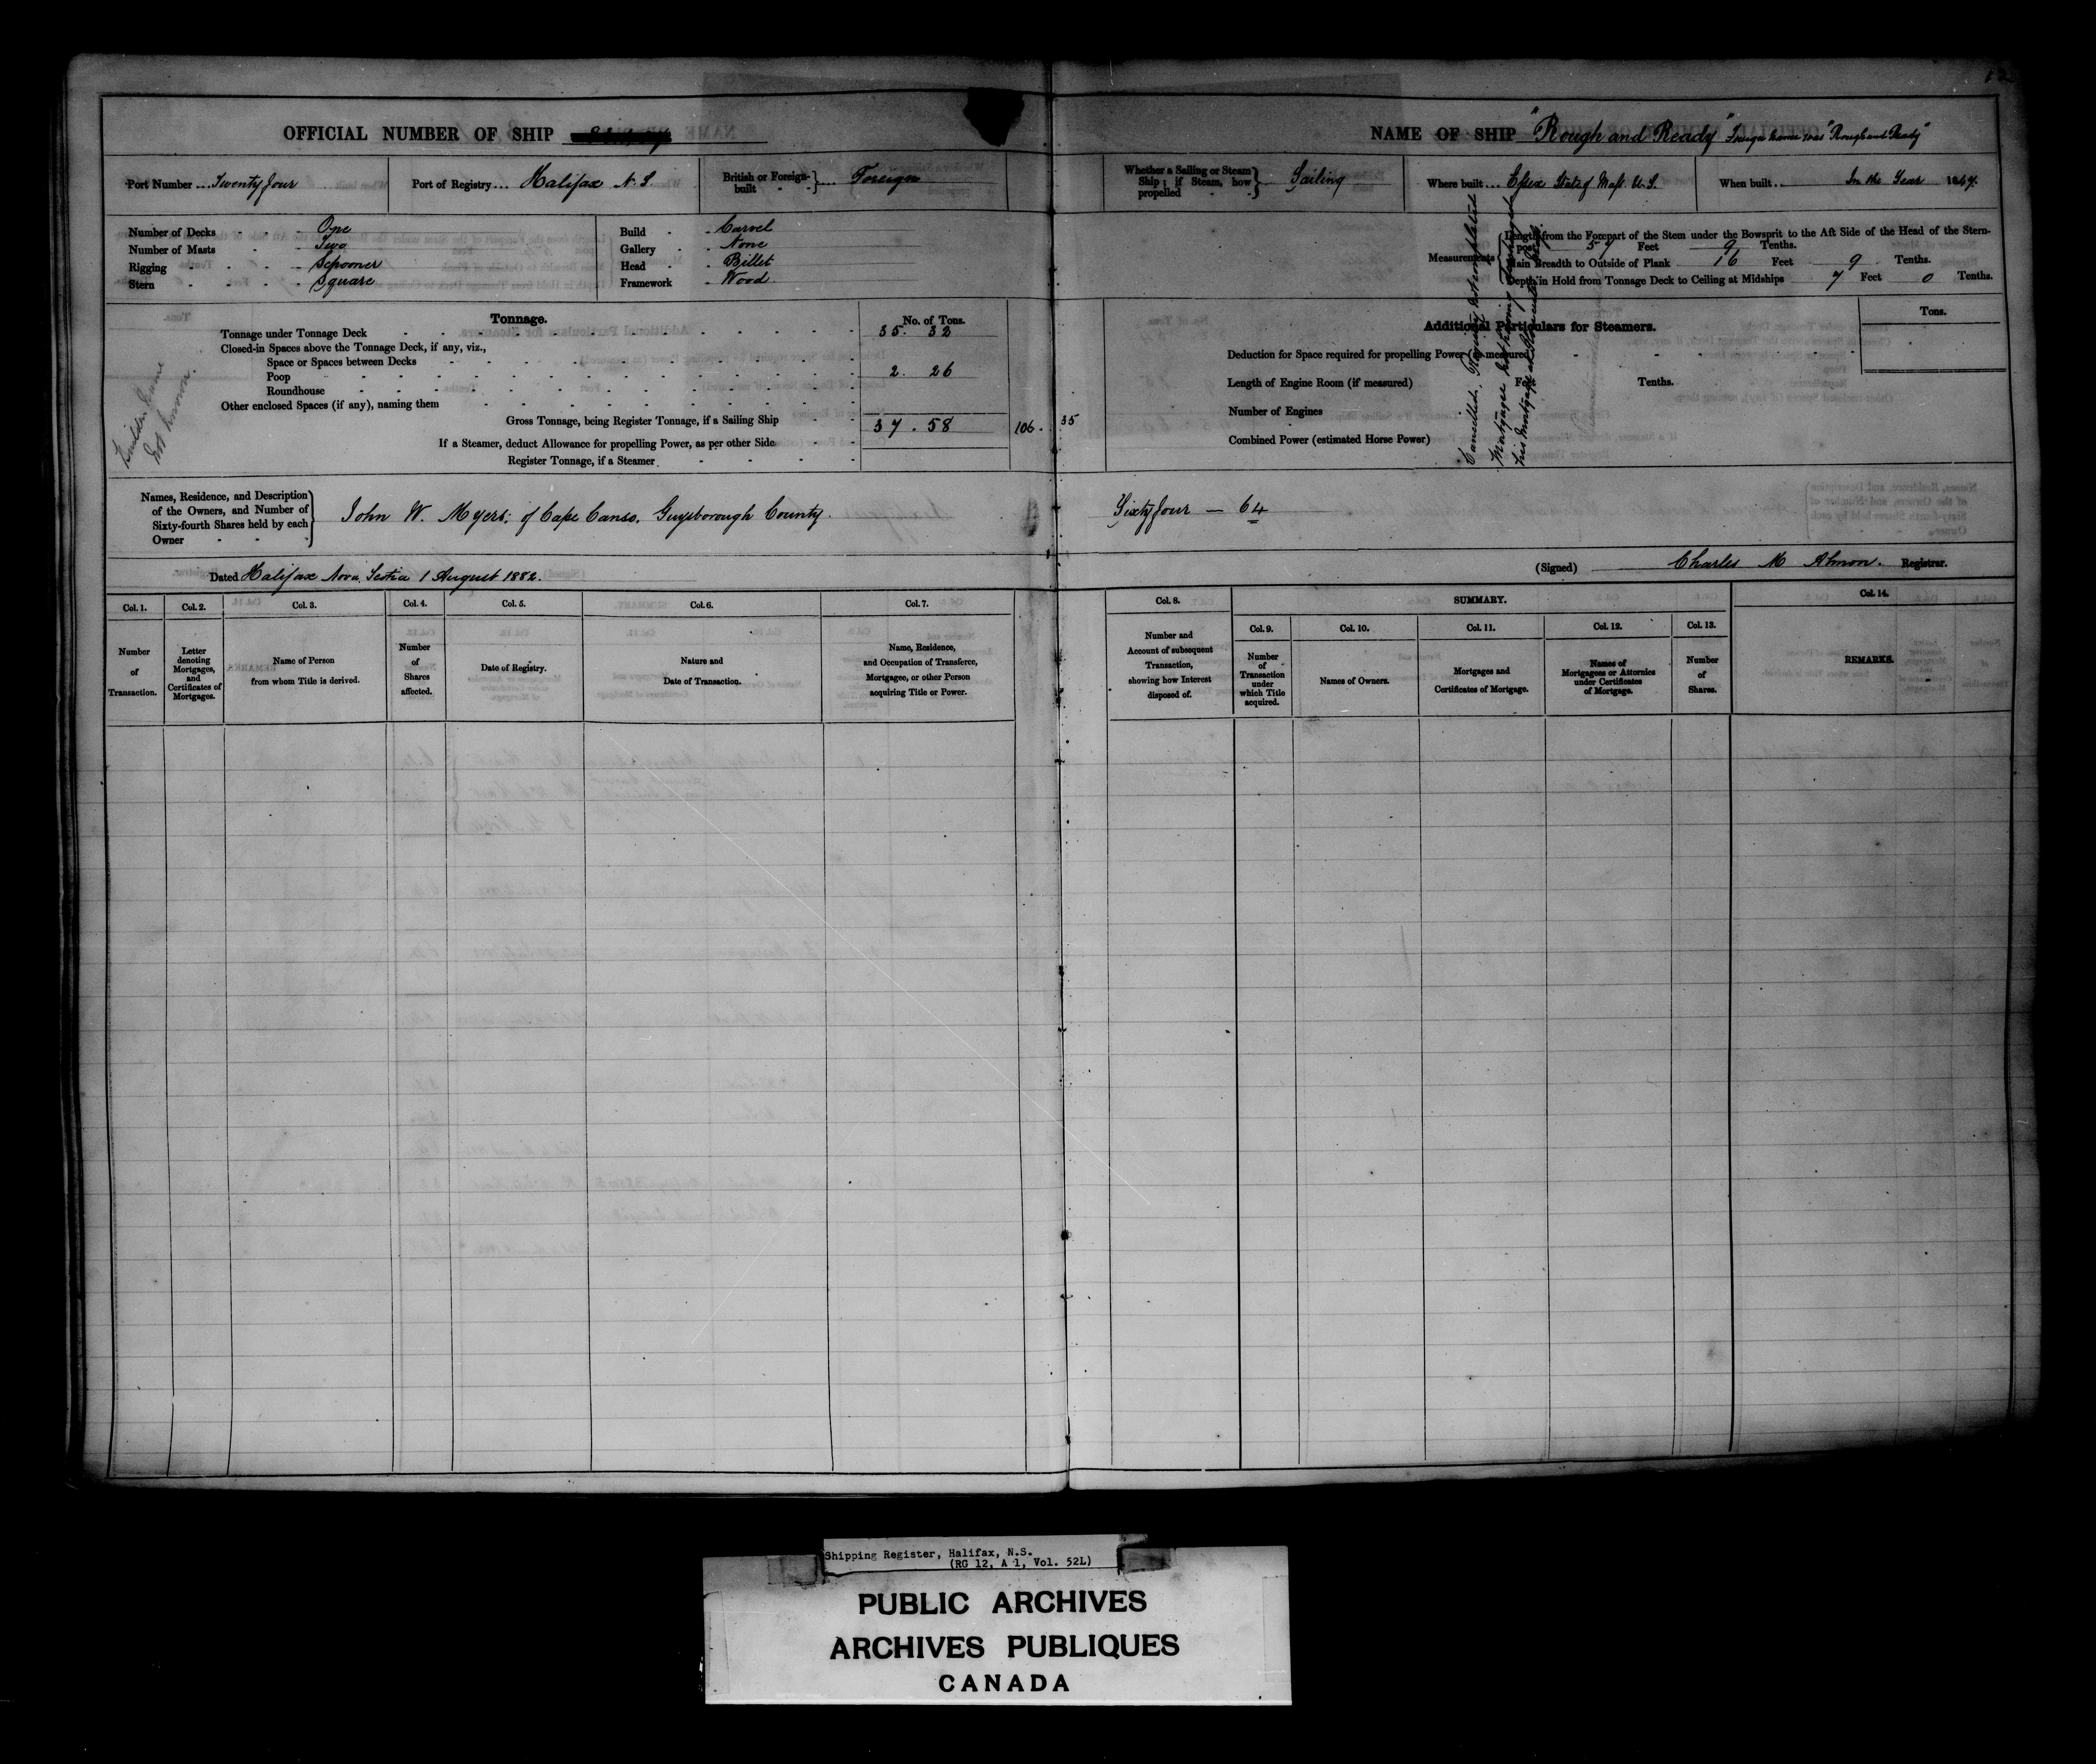 OFFICIAL NUMBER OF SHIP
Port Number ... Twenty four
Port of Registry ... Halifax N. S.
British or Foreign-built } ... Foreign
Number of Decks - One
Number of Masts - Two
Rigging - Schooner
Stern - Square
Build - Carvel
Gallery - None
Head - Billet
Framework - Wood
Tonnage.
No. of Tons.
Tonnage under Tonnage Deck 35. 32
Closed-in Spaces above the Tonnage Deck, if any, viz.,
Space or Spaces between Decks
Poop 2. 26
Roundhouse
Other enclosed Spaces (if any), naming them
Gross Tonnage, being Register Tonnage, if a Sailing Ship 37. 58 106. 35
If a Steamer, deduct Allowance for propelling Power, as per other Side
Register Tonnage, if a Steamer
Builders Name
not known.
Names, Residence, and Description
of the Owners, and Number of
Sixty-fourth Shares held by each
Owner
John W. Myers, of Cape Canso, Guysborough County.
Dated Halifax Nova Scotia 1 August 1882.
Col. 1.
Number
of
Transaction.
Col. 2.
Letter
denoting
Mortgages,
and
Certificates of
Mortgages.
Col. 3.
Name of Person
from whom Title is derived.
Col. 4.
Number
of
Shares
affected.
Col. 5.
Date of Registry.
Col. 6.
Nature and
Date of Transaction.
Col. 7.
Name, Residence,
and Occupation of Transferee,
Mortgagee, or other Person
acquiring Title or Power.
NAME OF SHIP "Rough and Ready" Foreign Name was "Rough and Ready"
Whether a Sailing or Steam
Ship; if Steam, how
propelled
Sailing
Where built ... Essex State of Mass. U. S.
When built ... In the Year 1847.
Measurements
Length from the Forepart of the Stem under the Bowsprit to the Aft Side of the Head of the Stern-
post 57 Feet 9 Tenths.
Main Breadth to Outside of Plank 16 Feet 9 Tenths.
Depth in Hold from Tonnage Deck to Ceiling at Midships 7 Feet 0 Tenths.
Additional Particulars for Steamers.
Tons.
Deduction for Space required for propelling Power (as measured)
Length of Engine Room (if measured) Feet Tenths.
Number of Engines
Combined Power (estimated Horse Power)
Cancelled, Registry not completed
Mortgagee not having
his Mortgage
Sixty four — 64
(Signed) Charles M Almon. Registrar.
Col. 8.
Number and
Account of subsequent
Transaction,
showing how Interest
disposed of.
SUMMARY.
Col. 9.
Number
of
Transaction
under
which Title
acquired.
Col. 10.
Names of Owners.
Col. 11.
Mortgages and
Certificates of Mortgage.
Col. 12.
Names of
Mortgagees or Attornies
under Certificates
of Mortgage.
Col. 13.
Number
of
Shares.
Col. 14.
REMARKS.
Shipping Register, Halifax, N.S.
(RG 12, A 1, Vol. 52L)
PUBLIC ARCHIVES
ARCHIVES PUBLIQUES
CANADA